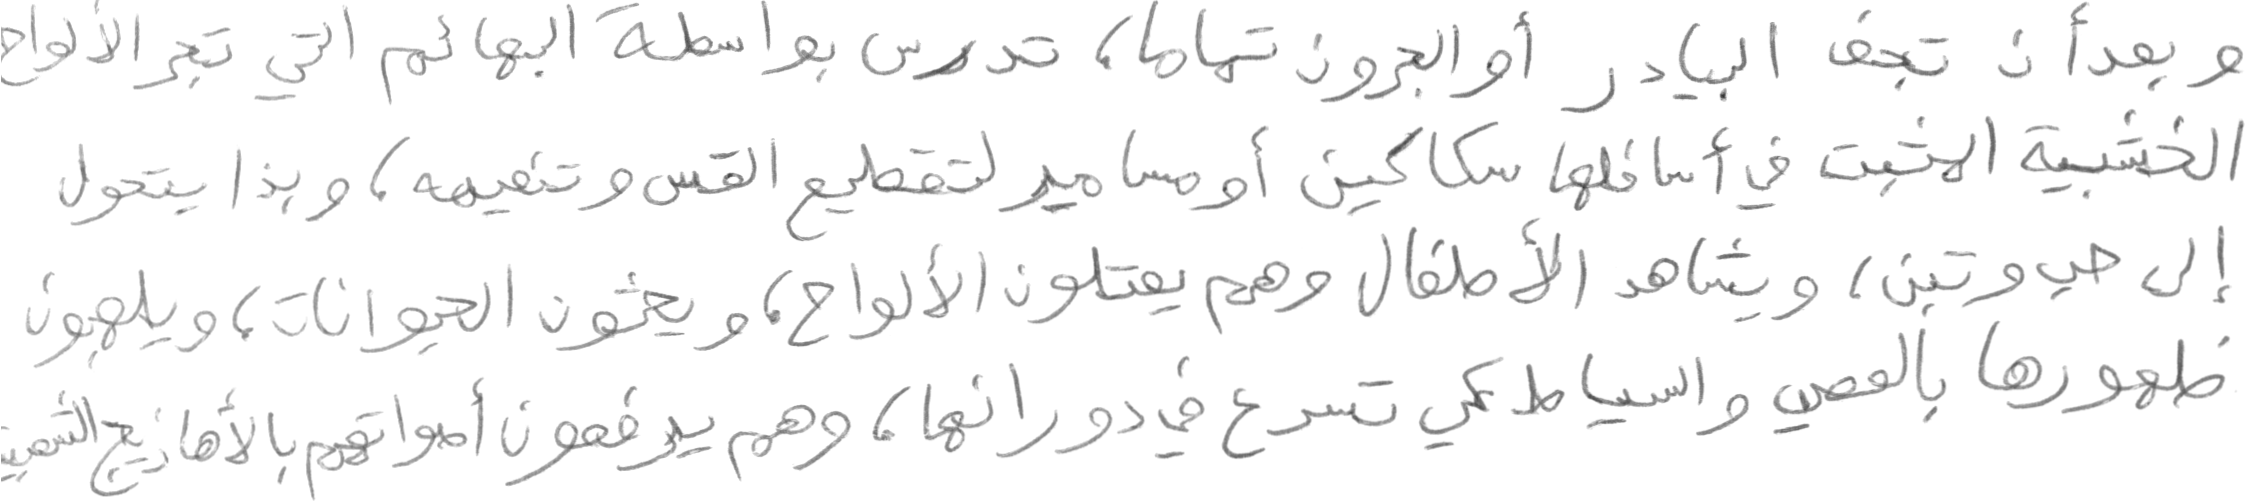 وبعد أن تجف البيادر أو الجرون تماما، تدرس بواسطة البهائم التي تجر الألواح
الخشبية المثبت في أسافلها سكاكين أو مسامير لتقطيع القس وتنعيمه، وبذا يتحول
إلى حب وتبن، ويشاهد الأطفال وهم يعتلون الألواح، ويحثون الحيوانات، ويلهبون
ظهورها بالعصي والسياط كي تسرع في دورانها، وهم يرفعون أصواتهم بالأهازيج الشعبية